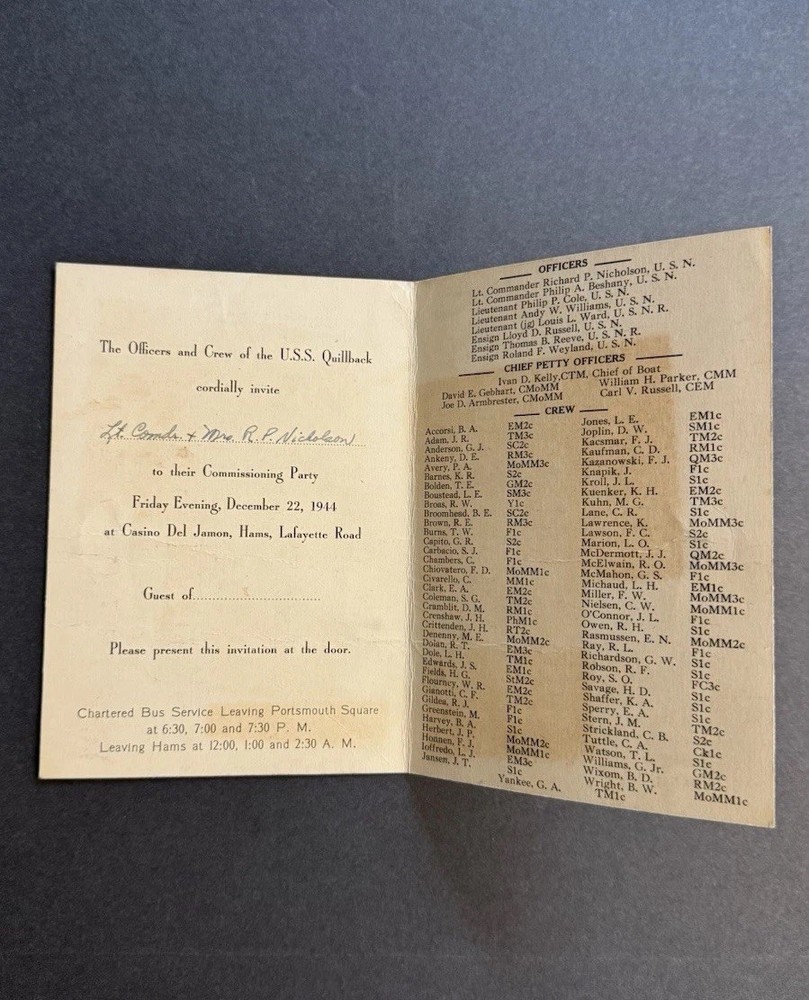 The Officers and Crew of the U.S.S. Quillback
cordially invite
Lt. Comdr + Mrs. R. P. Nicholson
to their Commissioning Party
Friday Evening, December 22, 1944
at Casino Del Jamon, Hams, Lafayette Road
Guest of
Please present this invitation at the door.
Chartered Bus Service Leaving Portsmouth Square
at 6:30, 7:00 and 7:30 P. M.
Leaving Hams at 12:00, 1:00 and 2:30 A. M.
OFFICERS
Lt. Commander Richard P. Nicholson, U. S. N.
Lt. Commander Philip A. Beshany, U. S. N.
Lieutenant Philip P. Cole, U. S. N.
Lieutenant Andy W. Williams, U. S. N.
Lieutenant (jg) Louis L. Ward, U. S. N. R.
Ensign Lloyd D. Russell, U. S. N.
Ensign Thomas B. Reeve, U. S. N. R.
Ensign Roland F. Weyland, U. S. N.
CHIEF PETTY OFFICERS
Ivan D. Kelly,CTM, Chief of Boat
David E. Gebhart, CMoMM William H. Parker, CMM
Joe D. Armbrester, CMoMM Carl V. Russell, CEM
CREW
Accorsi, B. A. EM2c Jones, L. E. EM1c
Adam, J. R. TM3c Joplin, D. W. SM1c
Anderson, G. J. SC2c Kacsmar, F. J. TM2c
Ankeny, D. E. RM3c Kaufman, C. D. RM1c
Avery, P. A. MoMM3c Kazanowski, F. J. QM3c
Barnes, K. R. S2c Knapik, J. F1c
Bolden, T. E. GM2c Kroll, J. L. S1c
Boustead, L. E. SM3c Kuenker, K. H. EM2c
Bross, R. W. Y1c Kuhn, M. G. TM3c
Broomhead, B. E. SC2c Lane, C. R. S1c
Brown, R. E. RM3c Lawrence, K. MoMM3c
Burns, T. W. F1c Lawson, F. C. S2c
Capito, G. R. S2c Marion, L. O. S1c
Carbacio, S. J. F1c McDermott, J. J. QM2c
Chambers, C. F1c McElwain, R. O. MoMM3c
Chiovatero, F. D. MoMM1c McMahon, G. S. F1c
Civarello, C. MM1c Michaud, L. H. EM1c
Clark, E. A. EM2c Miller, F. W. MoMM3c
Coleman, S. G. TM2c Nielsen, C. W. MoMM1c
Cramblit, D. M. RM1c O'Connor, J. L. F1c
Crenshaw, J. H. PhM1c Owen, R. H. S1c
Crittenden, J. H. RT2c Rasmussen, E. N. MoMM2c
Denenny, M. E. MoMM2c Ray, R. L. F1c
Dolan, R. T. EM3c Richardson, G. W. S1c
Dole, L. H. TM1c Robson, R. F. S1c
Edwards, J. S. EM1c Roy, S. O. FC3c
Fields, H. G. StM2c Savage, H. D. S1c
Flourney, W. R. EM2c Shaffer, K. A. S1c
Gianotti, C. F. TM2c Sperry, E. A. S1c
Gildea, R. J. F1c Stern, J. M. TM2c
Greenstein, M. F1c Strickland, C. B. S2c
Harvey, B. A. S1c Tuttle, C. A. Ck1c
Herbert, J. P. MoMM2c Watson, T. L. S1c
Honnen, F. J. MoMM1c Williams, G. Jr. GM2c
Ioffredo, L. J. EM3c Wixom, B. D. RM2c
Jansen, J. T. S1c Wright, B. W. MoMM1c
Yankee, G. A. TM1c